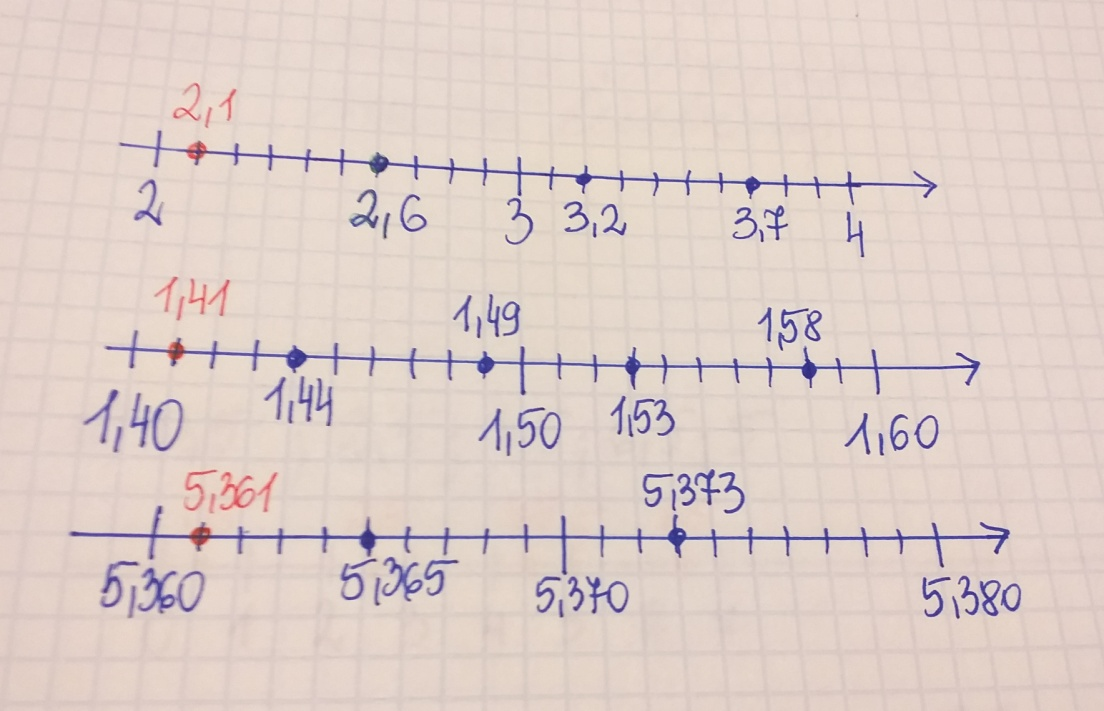 2,1
2 2,6 3 3,2 3,7 4
1,41 1,49 1,58
1,40 1,44 1,50 1,53 1,60
5,361 5,373
5,360 5,365 5,370 5,380